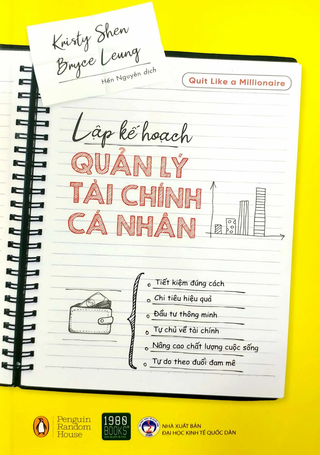 Kristy Shen
Bryce Leung
Hến Nguyễn dịch
Quit Like a Millionaire
Lập kế hoạch
QUẢN LÝ
TÀI CHÍNH
CÁ NHÂN
Tiết kiệm đúng cách
Chi tiêu hiệu quả
Đầu tư thông minh
Tự chủ về tài chính
Nâng cao chất lượng cuộc sống
Tự do theo đuổi đam mê
Penguin
Random
House
1980
BOOKS
NHÀ XUẤT BẢN
ĐẠI HỌC KINH TẾ QUỐC DÂN